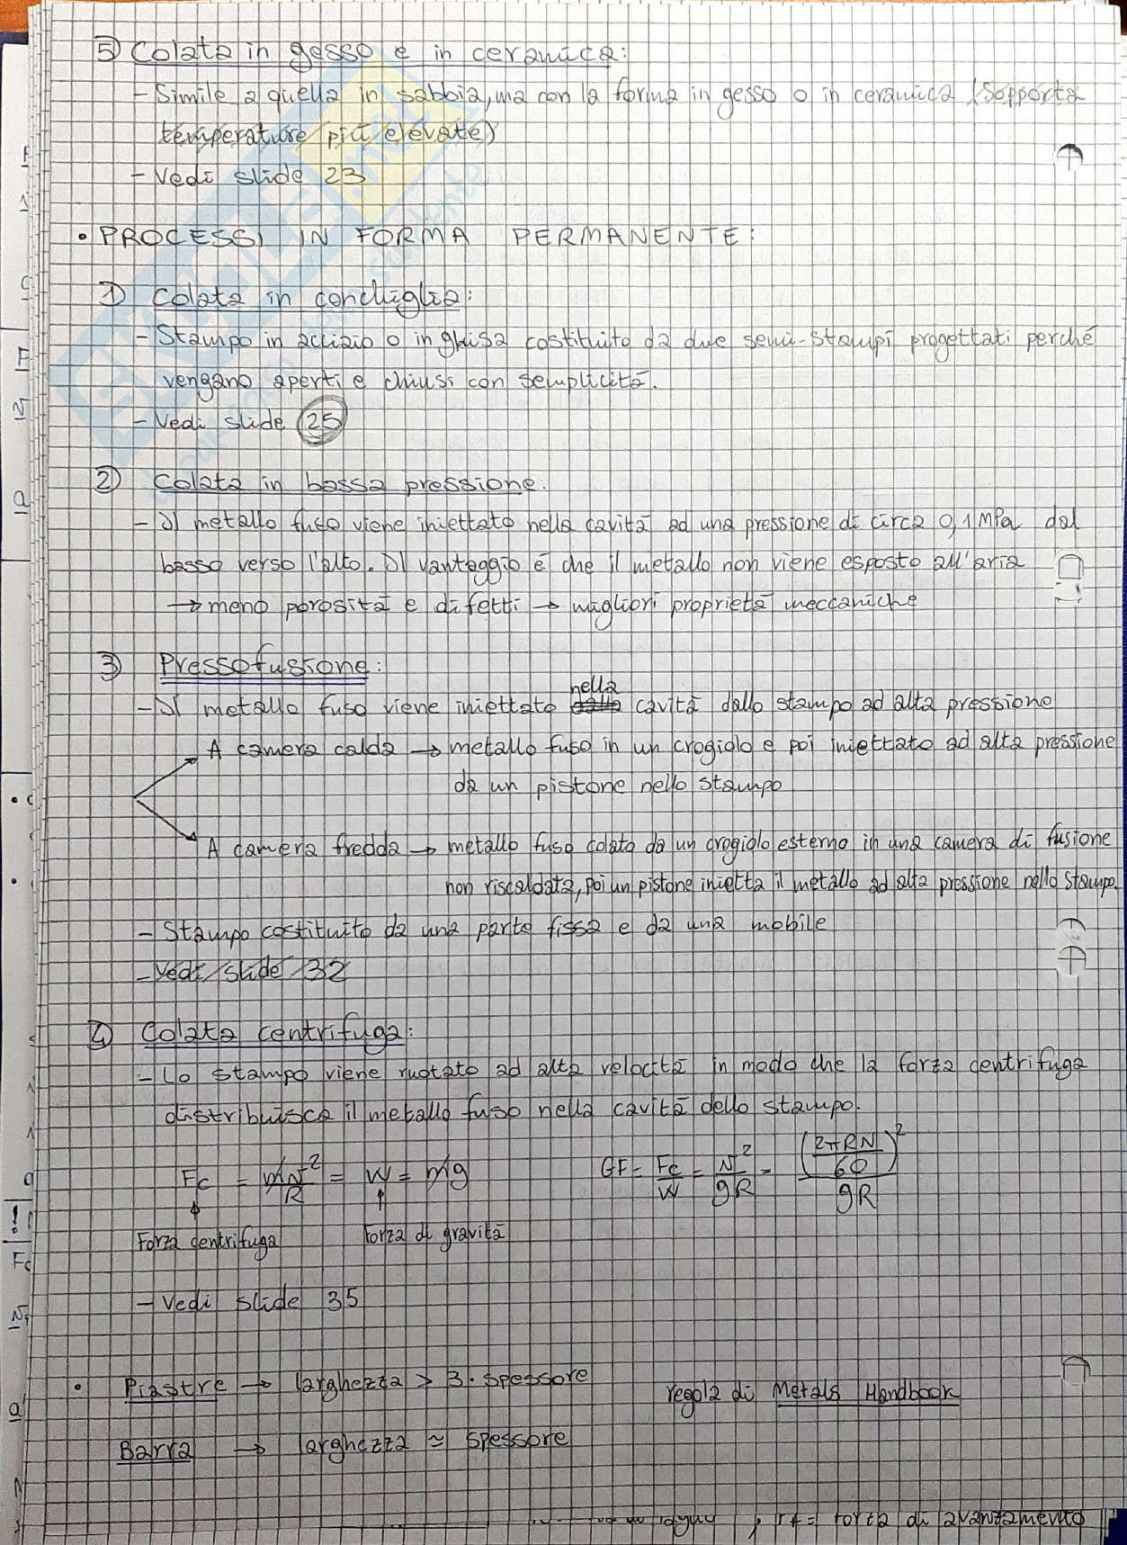 5) Colata in gesso e in ceramica:
- Simile a quella in sabbia, ma con la forma in gesso o in ceramica (sopporta
temperature più elevate)
- Vedi slide 23
• PROCESSI IN FORMA PERMANENTE:
1) Colata in conchiglia:
- Stampo in acciaio o in ghisa costituito da due semi-stampi progettati perché
vengano aperti e chiusi con semplicità.
- Vedi slide 25
2) Colata in bassa pressione:
- Il metallo fuso viene iniettato nella cavità ad una pressione di circa 0,1 MPa dal
basso verso l'alto. Il vantaggio è che il metallo non viene esposto all'aria
→ meno porosità e difetti → migliori proprietà meccaniche
3) Pressofusione:
nella
- Il metallo fuso viene iniettato cavità dallo stampo ad alta pressione
A camera calda → metallo fuso in un crogiolo e poi iniettato ad alta pressione
da un pistone nello stampo
A camera fredda → metallo fuso colato da un crogiolo esterno in una camera di fusione
non riscaldata, poi un pistone inietta il metallo ad alta pressione nello stampo
- Stampo costituito da una parte fissa e da una mobile
- Vedi slide 32
4) Colata centrifuga:
- Lo stampo viene ruotato ad alta velocità in modo che la forza centrifuga
distribuisca il metallo fuso nella cavità dello stampo.
Fc = mv²/R = W = mg GF = Fc/W = v²/gR = (2πRN/60)²/gR
Forza centrifuga Forza di gravità
- Vedi slide 35
• Piastre → larghezza > 3 · spessore regola di Metals Handbook
Barra → larghezza ≃ spessore
= forza di avanzamento